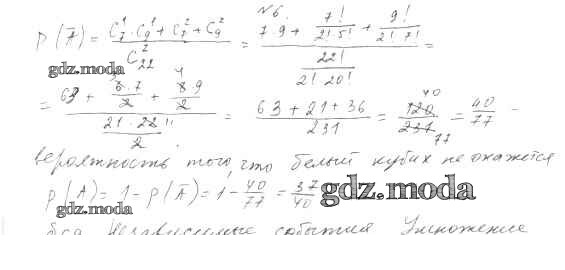 №6.
P(Ā) = (C₇¹ · C₉¹ + C₇² + C₉²) / C₂₂² = (7·9 + 7!/(2!·5!) + 9!/(2!·7!)) / (22!/(2!·20!)) =
gdz.moda
= (63 + 6·7/2 + 8·9/2) / (21·22/2) = (63 + 21 + 36)/231 = 120/231 = 40/77 –
вероятность того, что белый кубик не окажется
P(A) = 1 - P(Ā) = 1 - 40/77 = 37/40
gdz.moda
gdz.moda
Независимые события Умножение